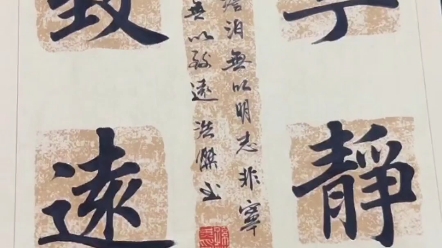 寧靜
澹泊無以明志非寧
無以致遠 浩书
致遠